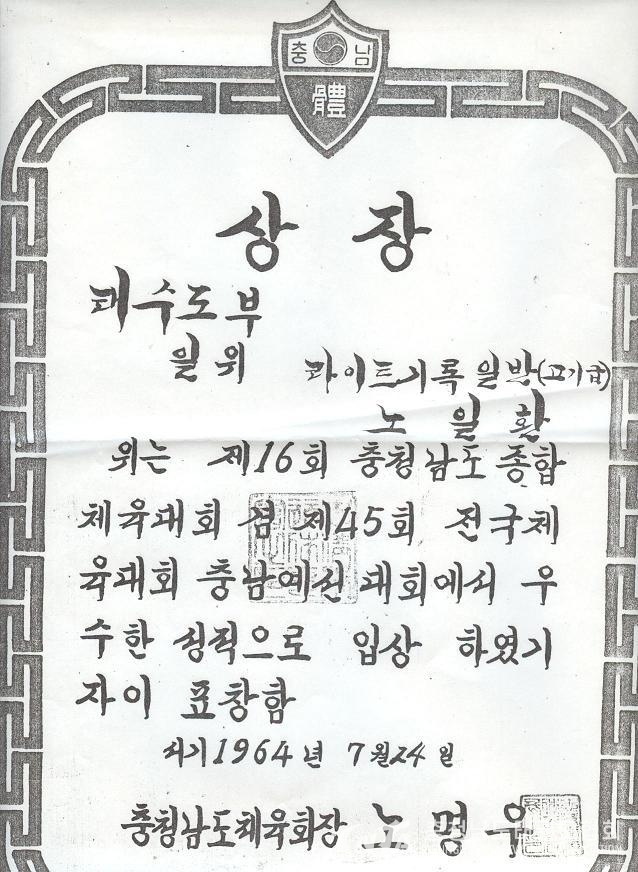 충 남
體
상 장
태수도부
일위
라이트기록 일반(고기급)
노 일 환
위는 제16회 충청남도 종합
체육대회 겸 제45회 전국체
육대회 충남예선 대회에서 우
수한 성적으로 입상 하였기
자이 표창함
서기1964년 7월24일
충청남도체육회장 노 명 우